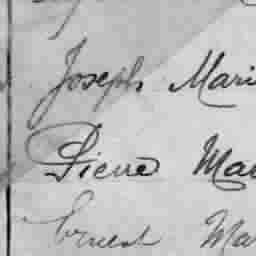 Joseph Mari
Pierre Mar
Ernest Mar